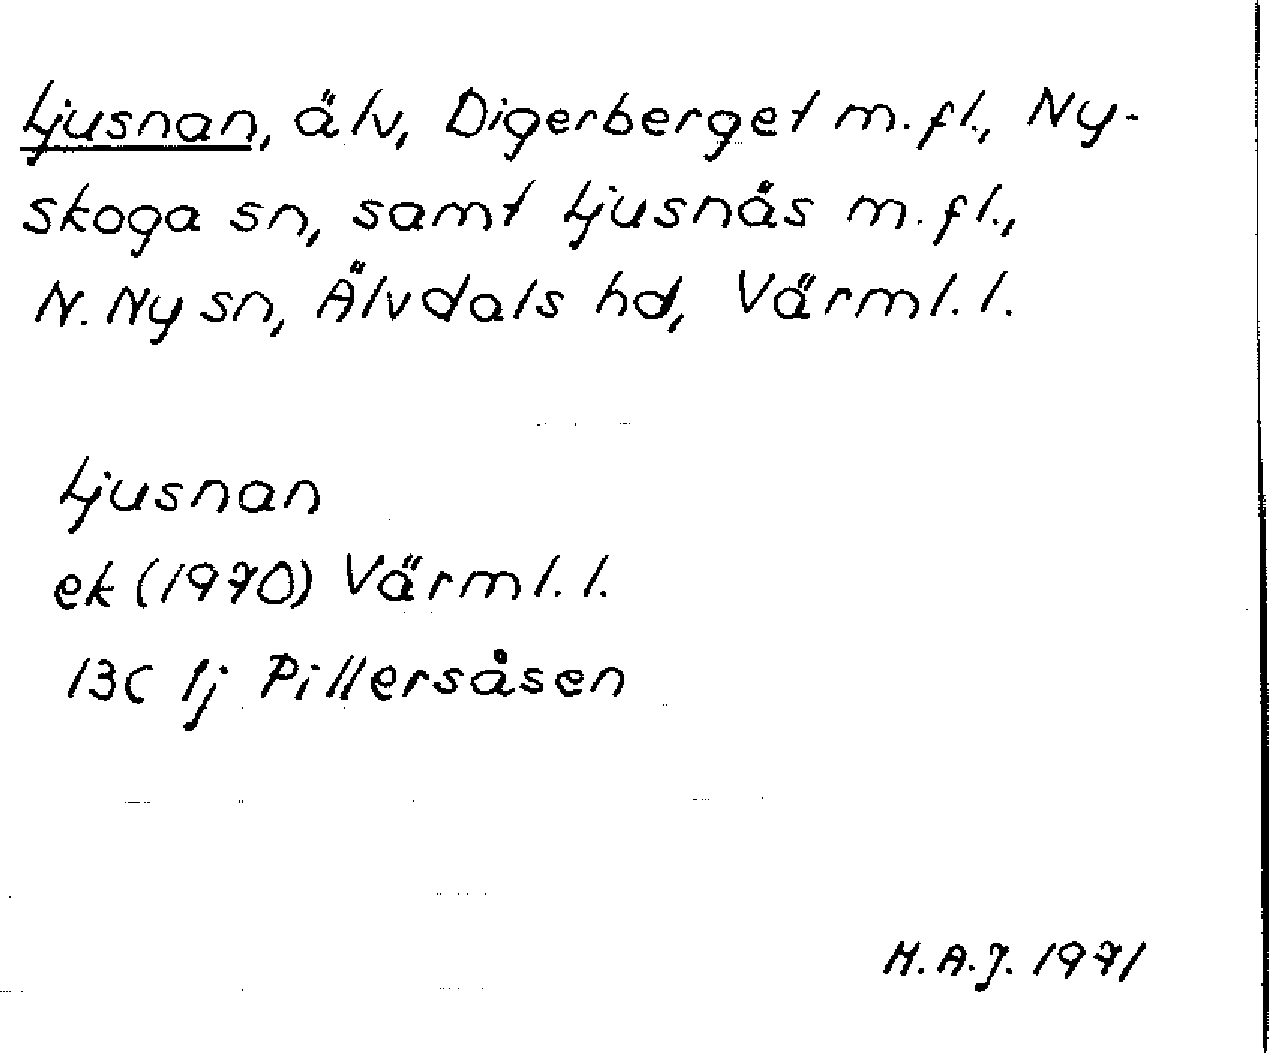 Ljusnan, älv, Digerberget m.fl., Ny-
skoga sn, samt Ljusnås m.fl.,
N. Ny sn, Älvdals hd, Värml. l.
Ljusnan
ek (1970) Värml. l.
13C 1j Pillersåsen
H.A.J. 1971